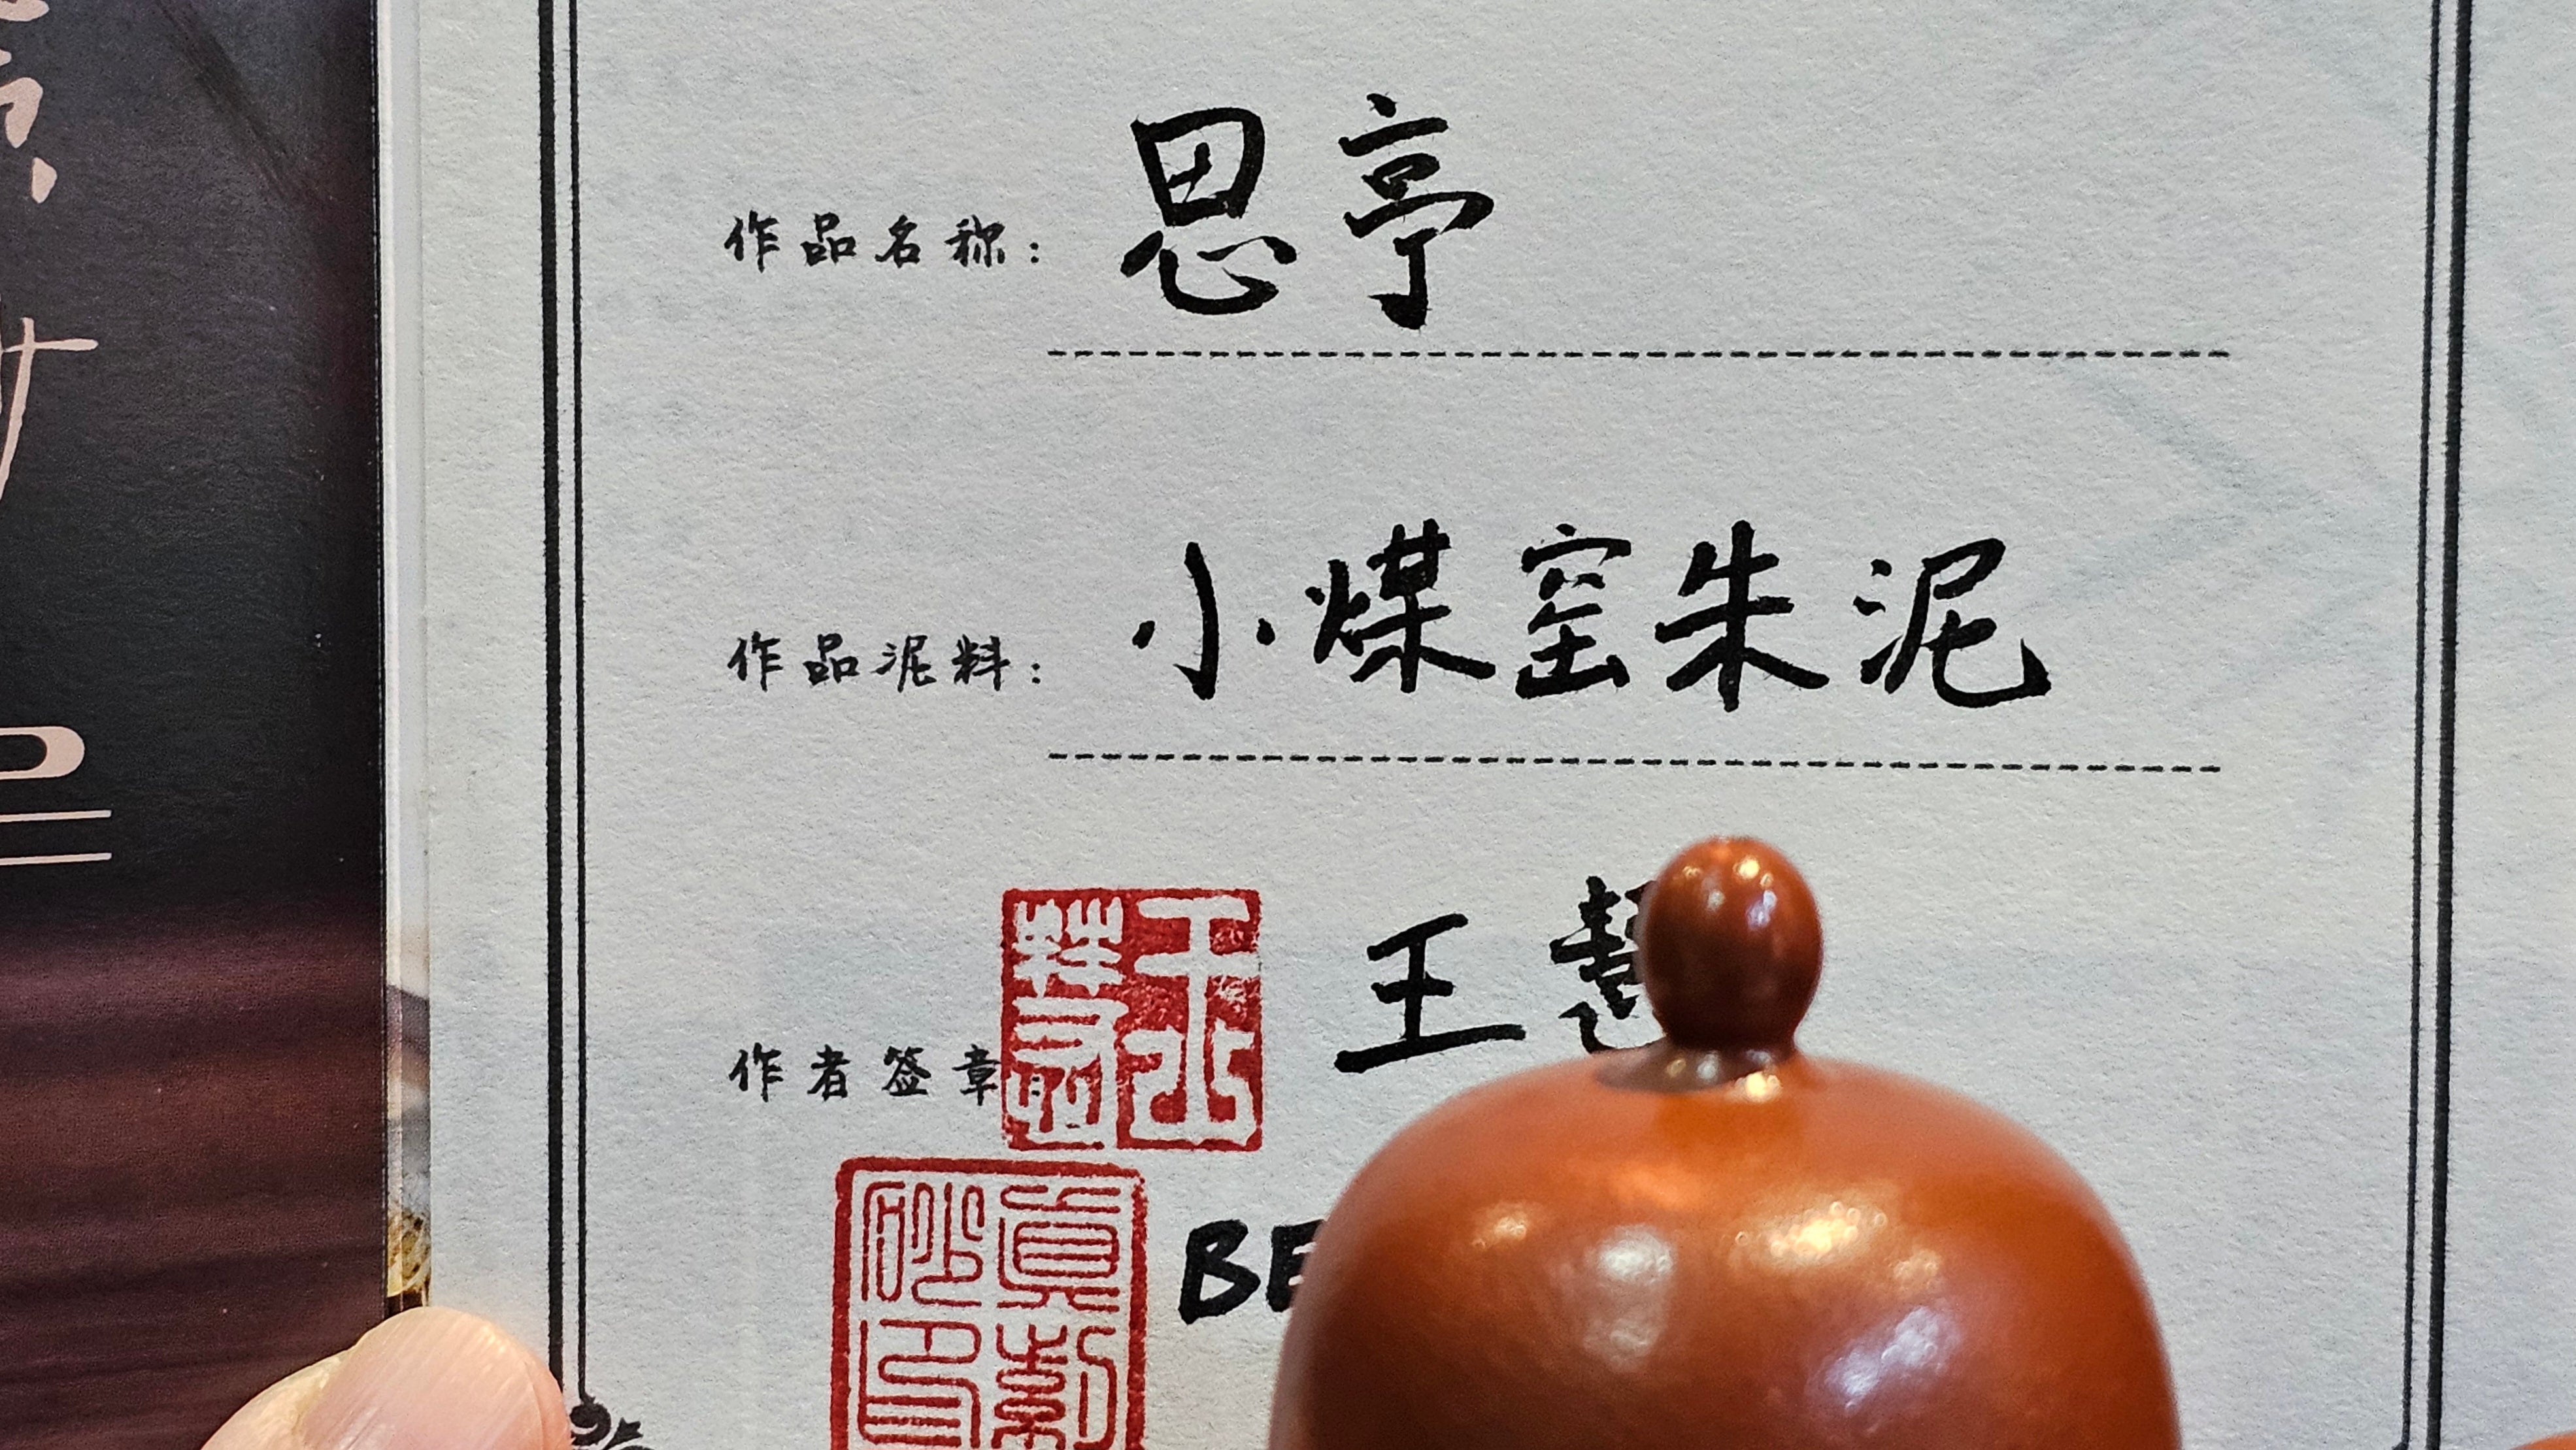 作品名称: 思亭
作品泥料: 小煤窑朱泥
作者签章 王慧
真紫砂印
BE